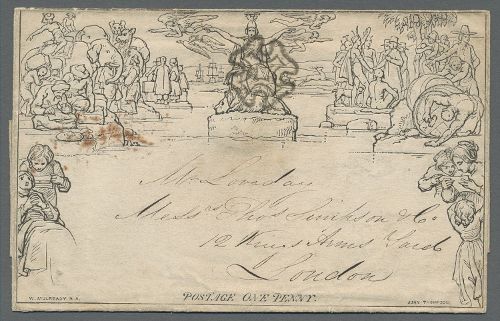 Mr Loveday
Messrs Thos Simpson & Co
12 Kings Arms Yard
London
POSTAGE ONE PENNY.
W. MULREADY. R.A.
JOHN THOMPSON